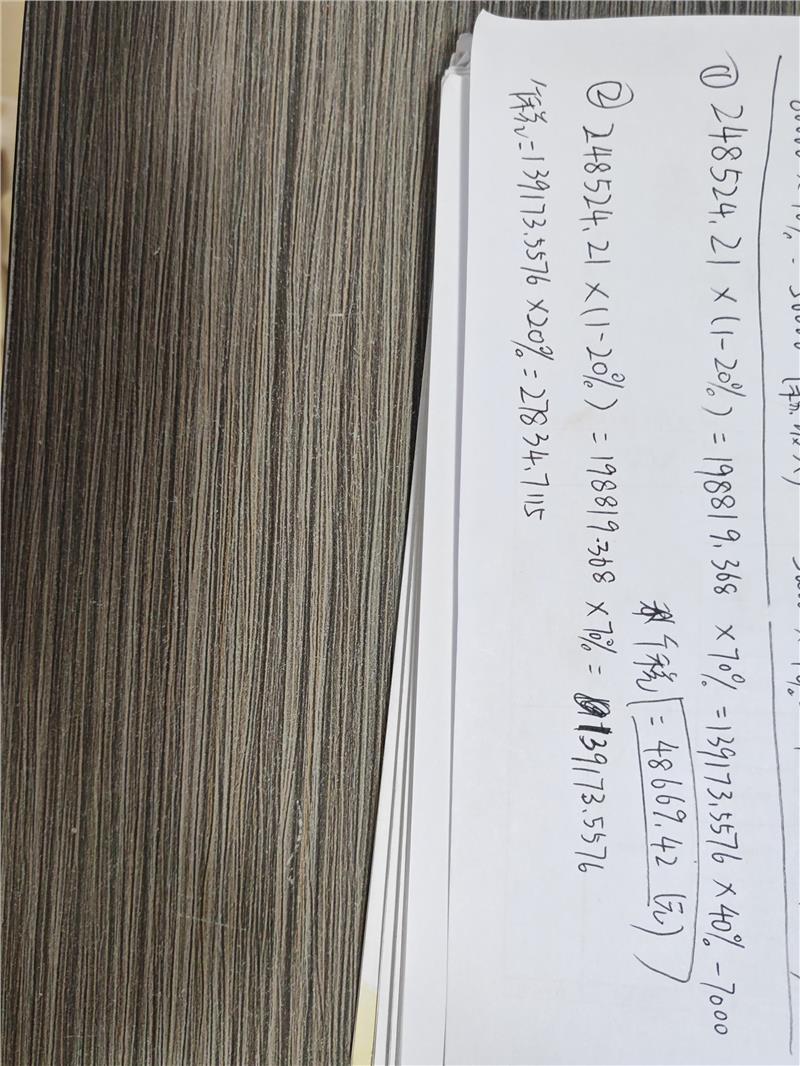 ① 248524.21 ×(1-20%) = 198819.368 ×70% = 139173.5576 × 40% - 7000
个税 = 48669.42 (元)
② 248524.21 ×(1-20%) = 198819.368 ×70% = 139173.5576
个税 = 139173.5576 ×20% = 27834.7115